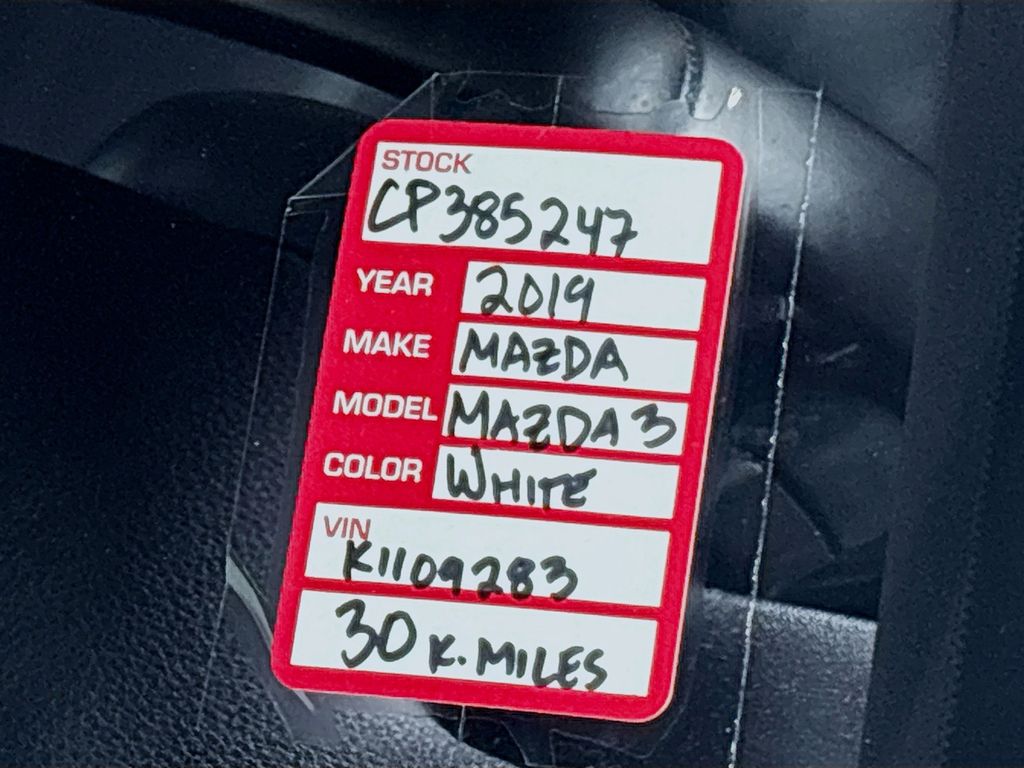 STOCK
CP385247
YEAR 2019
MAKE MAZDA
MODEL MAZDA 3
COLOR WHITE
VIN
K1109283
30 K. MILES